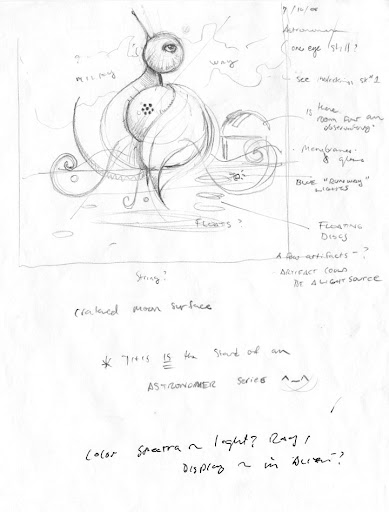 Astronomer
one eye still?
?
MILKY WAY
See
is there
room for an
observatory?
Membranes
& glass
BLUE "RUNWAY"
LIGHTS
FLOATS?
FLOATING
DISCS
A few artifacts - ?
ARTIFACT COULD
BE A LIGHT SOURCE
String?
cratered moon surface
* THIS IS the start of an
ASTRONOMER series ^_^
Color Spectra ~ light? Rays,
Display ~ in